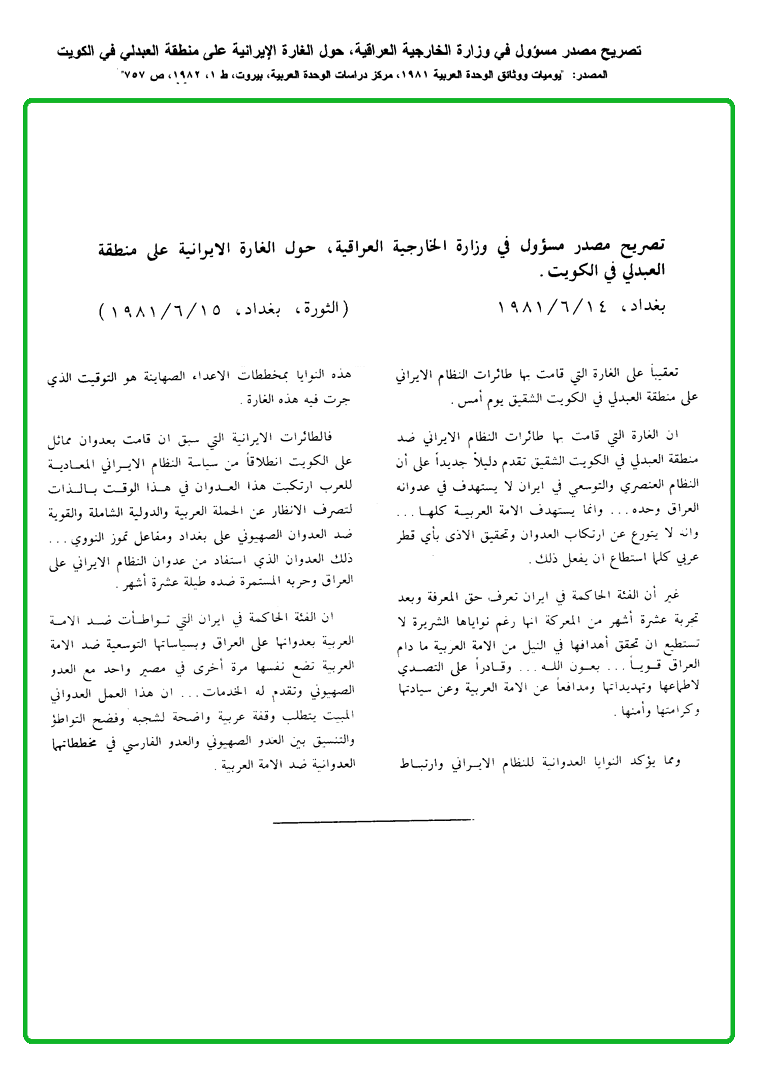 تصريح مصدر مسؤول في وزارة الخارجية العراقية، حول الغارة الإيرانية على منطقة العبدلي في الكويت
المصدر: "يوميات ووثائق الوحدة العربية ١٩٨١، مركز دراسات الوحدة العربية، بيروت، ط ١، ١٩٨٢، ص ٧٥٧"
تصريح مصدر مسؤول في وزارة الخارجية العراقية، حول الغارة الايرانية على منطقة
العبدلي في الكويت.
بغداد، ١٩٨١/٦/١٤
(الثورة، بغداد، ١٩٨١/٦/١٥)
تعقيباً على الغارة التي قامت بها طائرات النظام الايراني
على منطقة العبدلي في الكويت الشقيق يوم أمس.
ان الغارة التي قامت بها طائرات النظام الايراني ضد
منطقة العبدلي في الكويت الشقيق تقدم دليلاً جديداً على أن
النظام العنصري والتوسعي في ايران لا يستهدف في عدوانه
العراق وحده... وانما يستهدف الامة العربية كلها...
وانه لا يتورع عن ارتكاب العدوان وتحقيق الاذى بأي قطر
عربي كلما استطاع ان يفعل ذلك.
غير أن الفئة الحاكمة في ايران تعرف حق المعرفة وبعد
تجربة عشرة أشهر من المعركة انها رغم نواياها الشريرة لا
تستطيع ان تحقق أهدافها في النيل من الامة العربية ما دام
العراق قوياً... بعون الله... وقادراً على التصدي
لاطماعها وتهديداتها ومدافعاً عن الامة العربية وعن سيادتها
وكرامتها وأمنها.
ومما يؤكد النوايا العدوانية للنظام الايراني وارتباط
هذه النوايا بمخططات الاعداء الصهاينة هو التوقيت الذي
جرت فيه هذه الغارة.
فالطائرات الايرانية التي سبق ان قامت بعدوان مماثل
على الكويت انطلاقاً من سياسة النظام الايراني المعادية
للعرب ارتكبت هذا العدوان في هذا الوقت بالذات
لتصرف الانظار عن الحملة العربية والدولية الشاملة والقوية
ضد العدوان الصهيوني على بغداد ومفاعل تموز النووي...
ذلك العدوان الذي استفاد من عدوان النظام الايراني على
العراق وحربه المستمرة ضده طيلة عشرة أشهر.
ان الفئة الحاكمة في ايران التي تواطأت ضد الامة
العربية بعدوانها على العراق وبسياساتها التوسعية ضد الامة
العربية تضع نفسها مرة أخرى في مصير واحد مع العدو
الصهيوني وتقدم له الخدمات... ان هذا العمل العدواني
المبيت يتطلب وقفة عربية واضحة لشجبه وفضح التواطؤ
والتنسيق بين العدو الصهيوني والعدو الفارسي في مخططاتهما
العدوانية ضد الامة العربية.